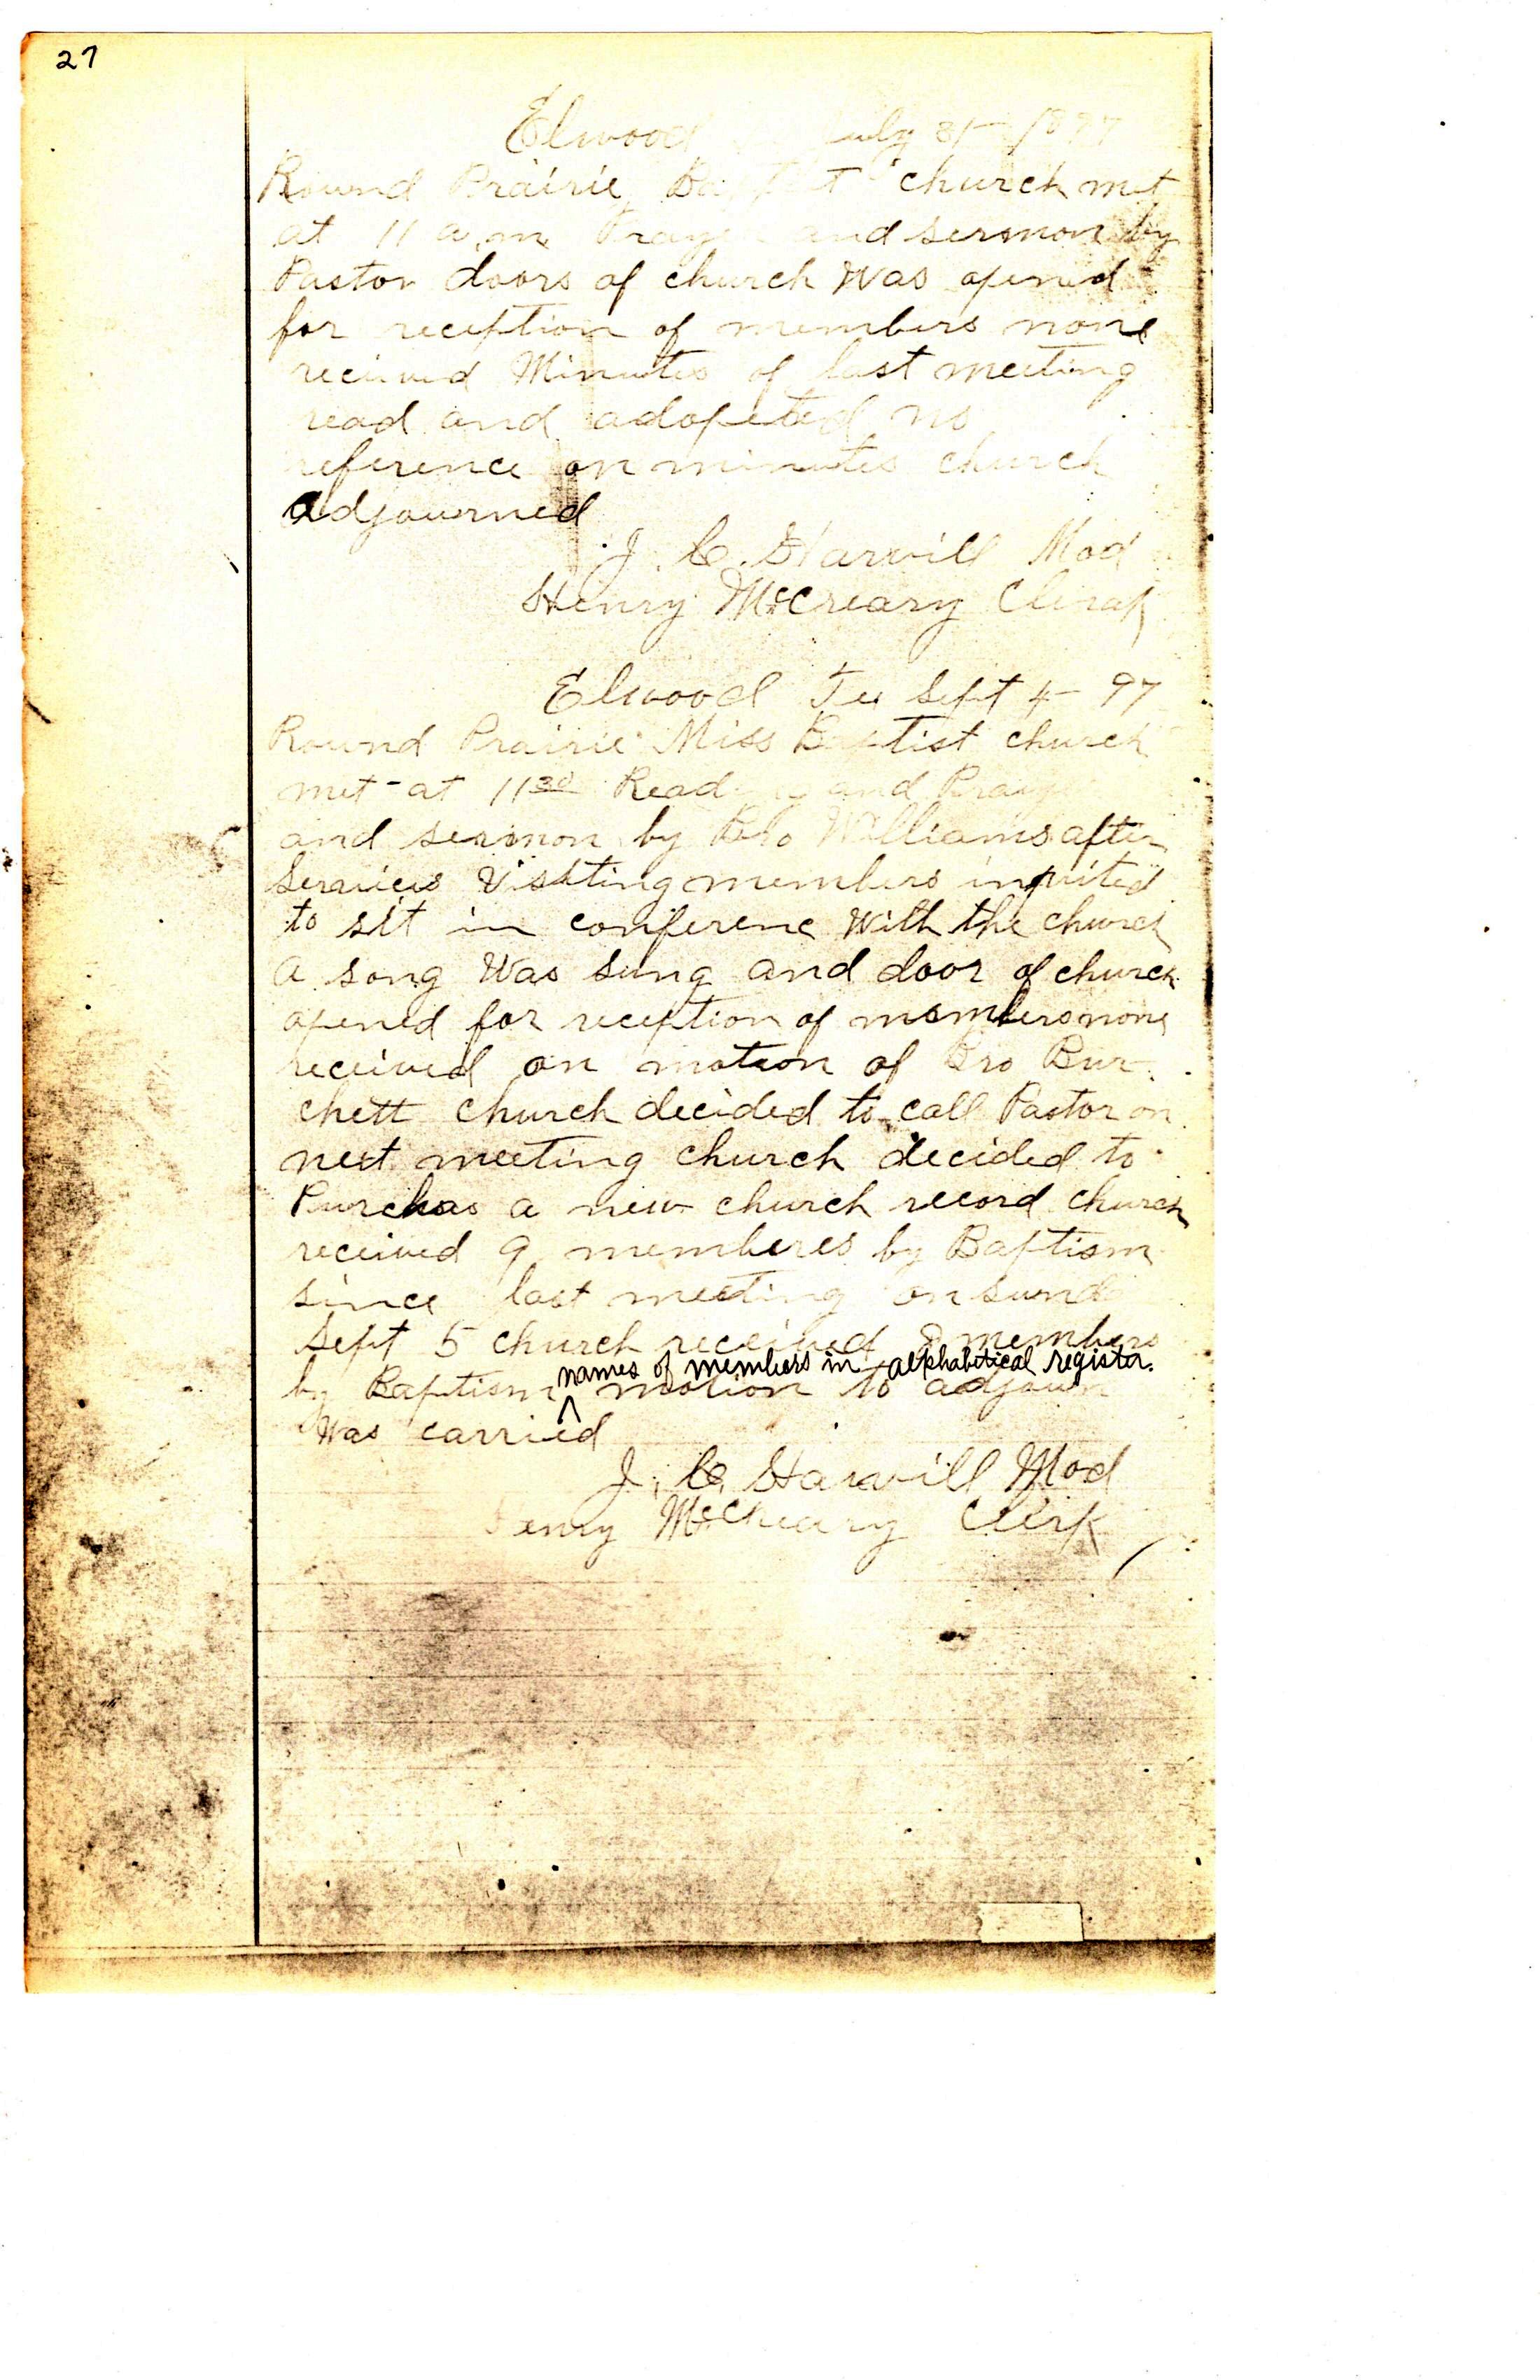 27
Elwood July 31 - 1897
Round Prairie Baptist church met
at 11 a.m. Prayer and sermon by
Pastor doors of church Was opened
for reception of members none
received Minutes of last meeting
read and adopeted no
reference on minutes church
adjourned
J. C. Harvill Mod
Henry McCreary Clerk
Elwood Tex Sept 4 - 97
Round Prairie Miss Baptist church
met - at 11 30 Reading and Prayer
and sermon by Bro Williams after
Services Visiting members invited
to sit in conference With the church
a song Was sung and door of church
opened for reception of members none
received on motion of Bro Bur-
chett church decided to call Pastor on
next meeting church decided to
Purchas a new church record church
received 9 memberes by Baptism
since last meeting on sund
Sept 5 church received members
names of members in alphabetical register.
by Baptism ^ motion to adjourn
Was carried
J. C. Harvill Mod
Henry McCreary Clerk